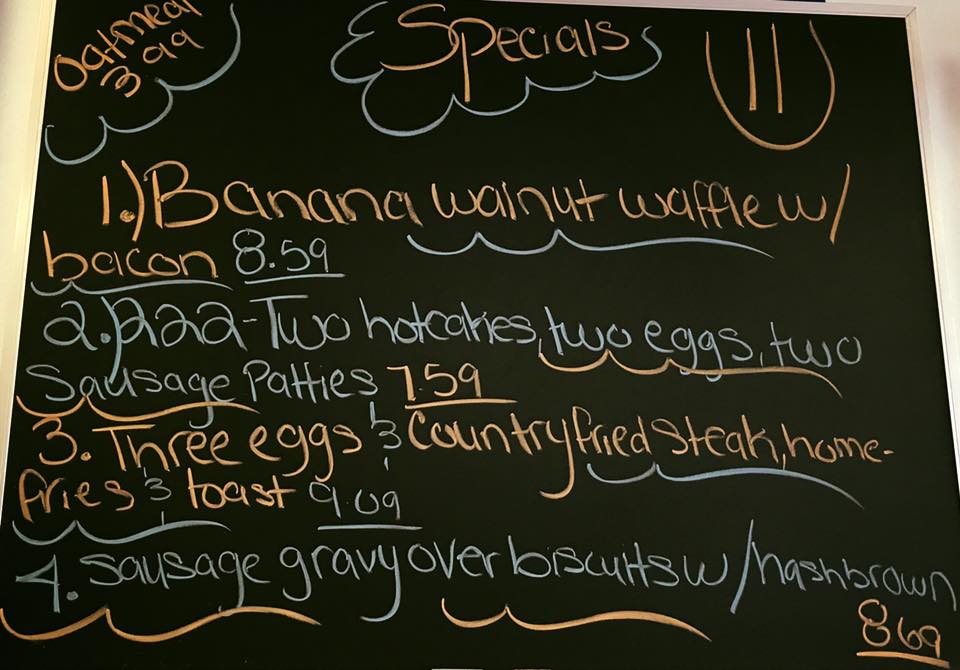 Oatmeal
3 99
Specials
1.) Banana walnut waffle w/
bacon 8.59
2.) 222-Two hotcakes, two eggs, two
Sausage Patties 7.59
3. Three eggs & Country fried steak, home-
fries & toast 9.09
4. sausage gravy over biscuits w/hashbrown
8 69